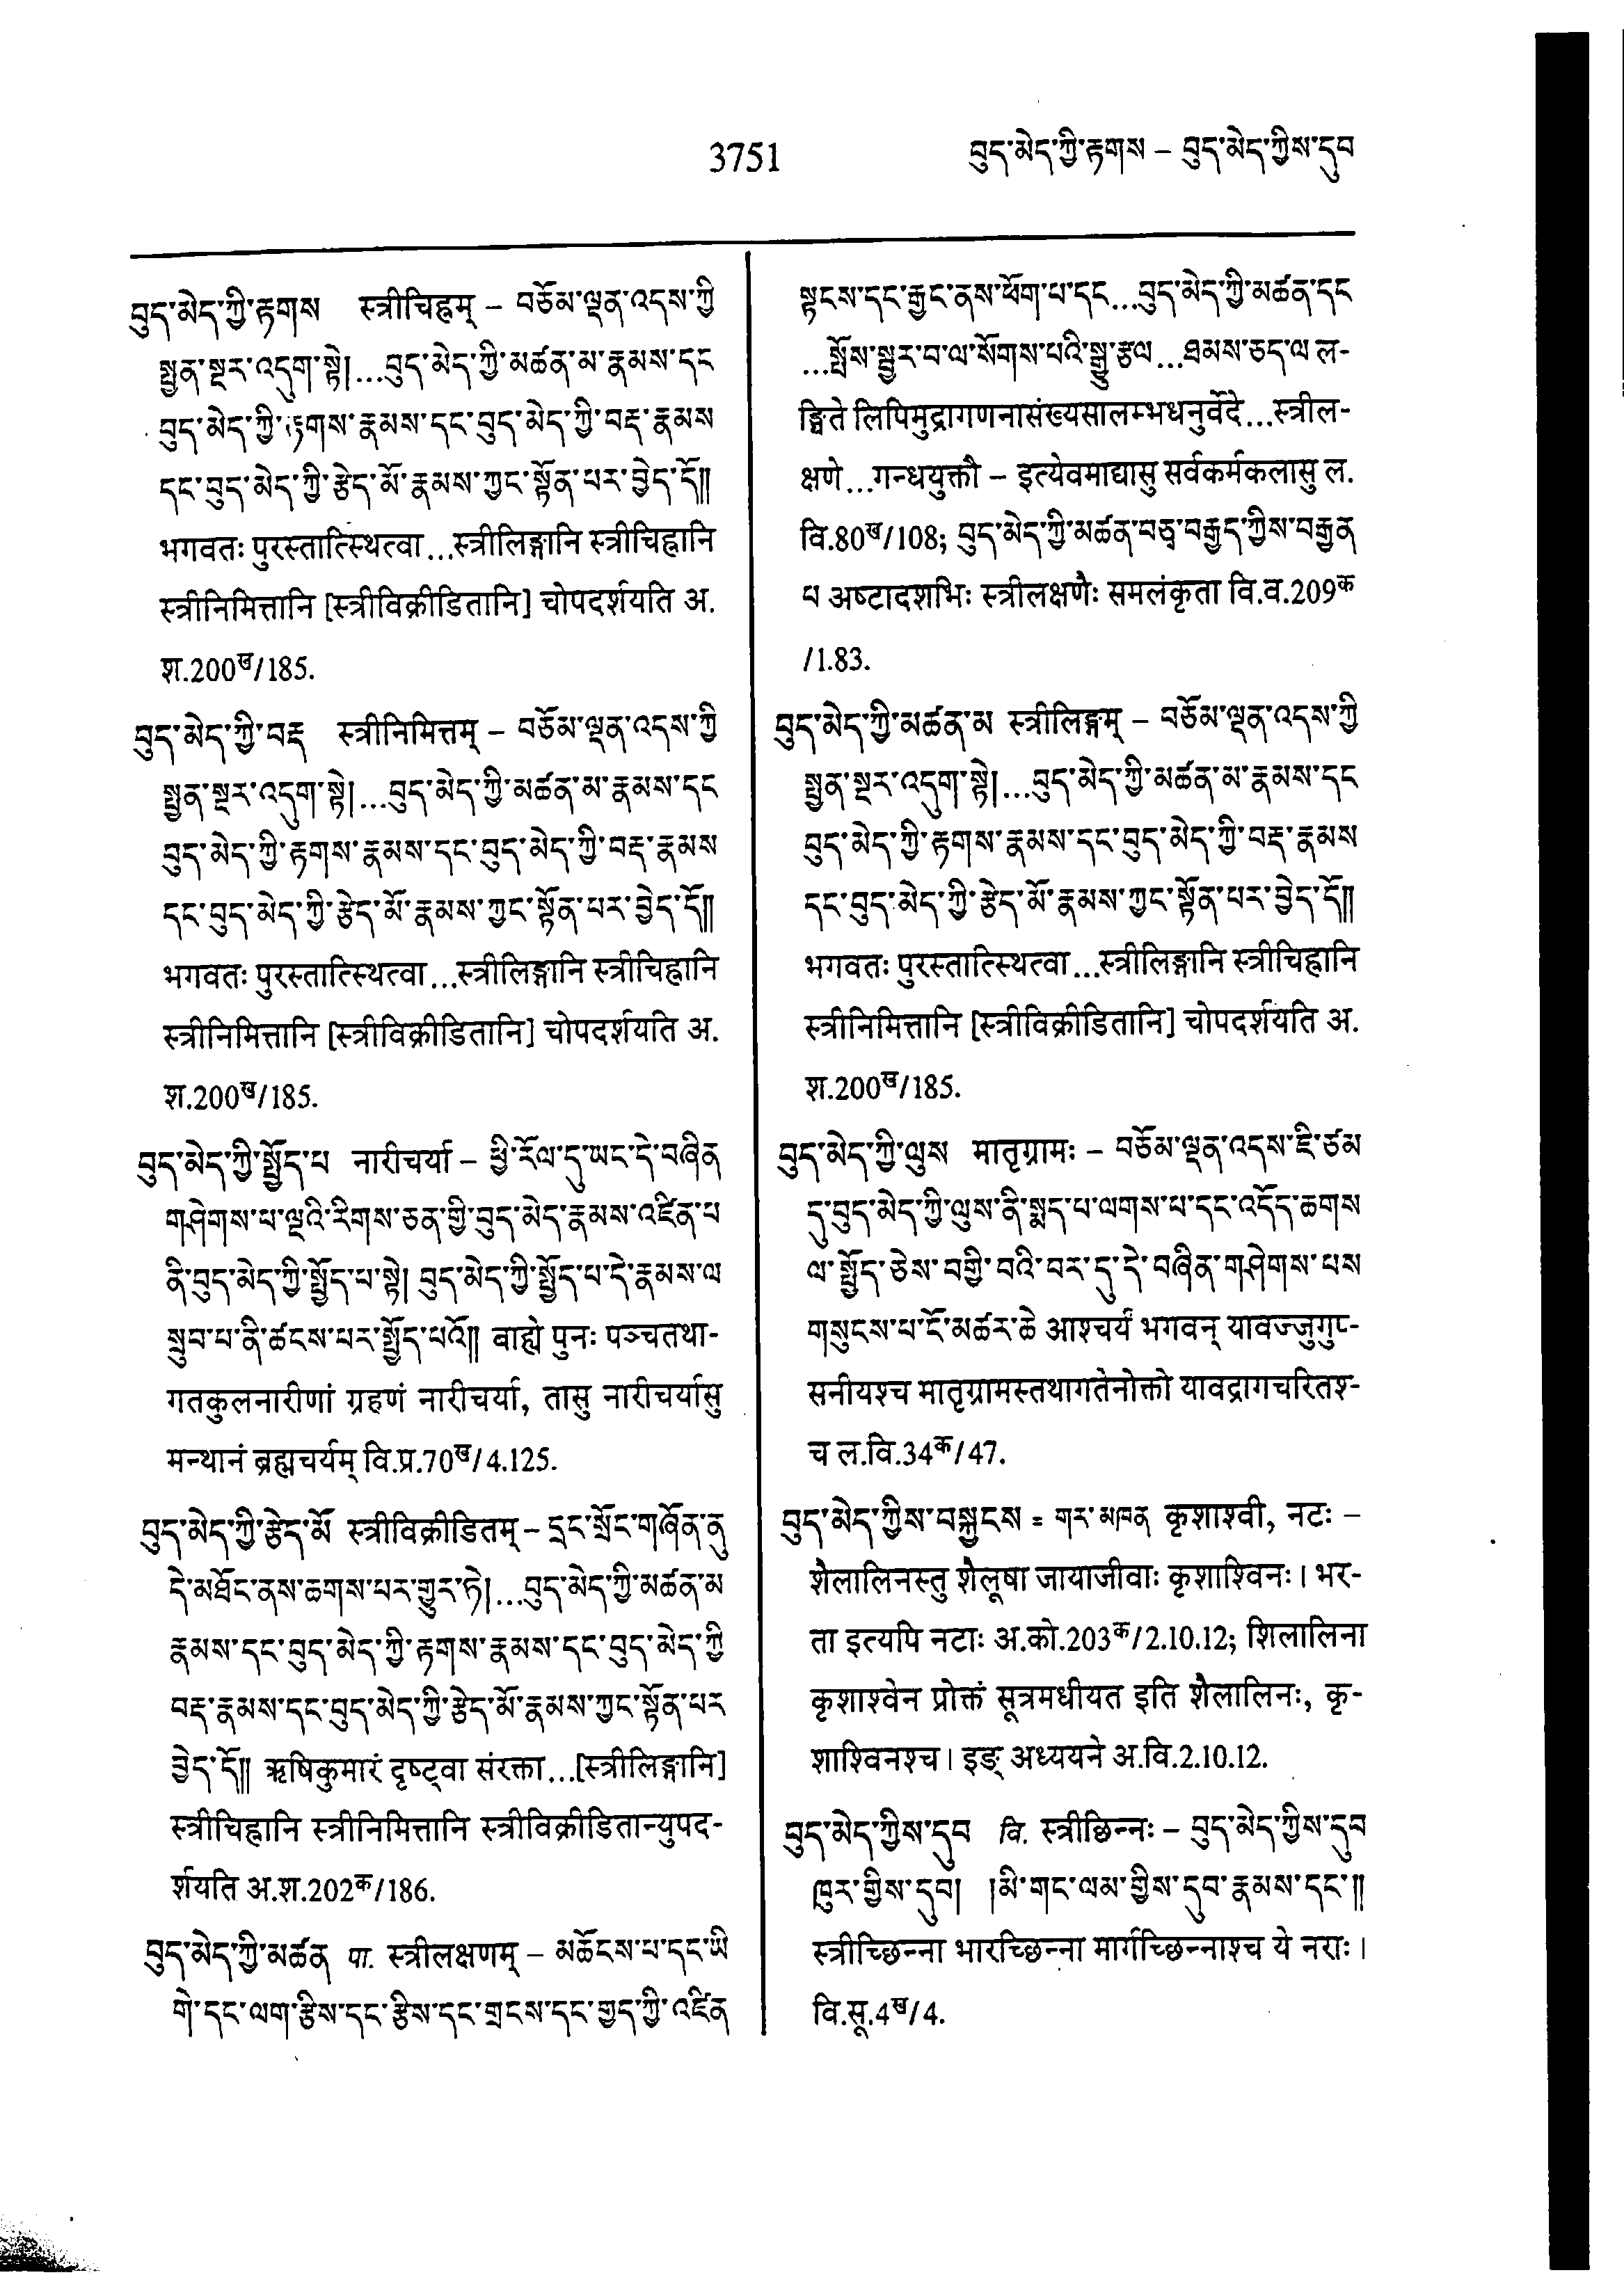 3751
བུད་མེད་ཀྱི་རྟགས – བུད་མེད་ཀྱིས་དུབ
བུད་མེད་ཀྱི་རྟགས स्त्रीचिह्नम् – བཅོམ་ལྡན་འདས་ཀྱི
སྤྱན་སྔར་འདུག་སྟེ།...བུད་མེད་ཀྱི་མཚན་མ་རྣམས་དང
བུད་མེད་ཀྱི་རྟགས་རྣམས་དང་བུད་མེད་ཀྱི་བརྡ་རྣམས
དང་བུད་མེད་ཀྱི་རྩེད་མོ་རྣམས་ཀྱང་སྟོན་པར་བྱེད་དོ༎
भगवतः पुरस्तात्स्थित्वा...स्त्रीलिङ्गानि स्त्रीचिह्नानि
स्त्रीनिमित्तानि [स्त्रीविक्रीडितानि] चोपदर्शयति अ.
श.200ख/185.
བུད་མེད་ཀྱི་བརྡ स्त्रीनिमित्तम् – བཅོམ་ལྡན་འདས་ཀྱི
སྤྱན་སྔར་འདུག་སྟེ།...བུད་མེད་ཀྱི་མཚན་མ་རྣམས་དང
བུད་མེད་ཀྱི་རྟགས་རྣམས་དང་བུད་མེད་ཀྱི་བརྡ་རྣམས
དང་བུད་མེད་ཀྱི་རྩེད་མོ་རྣམས་ཀྱང་སྟོན་པར་བྱེད་དོ༎
भगवतः पुरस्तात्स्थित्वा...स्त्रीलिङ्गानि स्त्रीचिह्नानि
स्त्रीनिमित्तानि [स्त्रीविक्रीडितानि] चोपदर्शयति अ.
श.200ख/185.
བུད་མེད་ཀྱི་སྤྱོད་པ नारीचर्या – ཕྱི་རོལ་དུ་ཡང་དེ་བཞིན
གཤེགས་པ་ལྔའི་རིགས་ཅན་གྱི་བུད་མེད་རྣམས་འཛིན་པ
ནི་བུད་མེད་ཀྱི་སྤྱོད་པ་སྟེ། བུད་མེད་ཀྱི་སྤྱོད་པ་དེ་རྣམས་ལ
སྲུབ་པ་ནི་ཚངས་པར་སྤྱོད་པའོ༎ बाह्ये पुनः पञ्चतथा-
गतकुलनारीणां ग्रहणं नारीचर्या, तासु नारीचर्यासु
मन्थानं ब्रह्मचर्यम् वि.प्र.70ख/4.125.
བུད་མེད་ཀྱི་རྩེད་མོ स्त्रीविक्रीडितम् – དྲང་སྲོང་གཞོན་ནུ
དེ་མཐོང་ནས་ཆགས་པར་གྱུར་ཏེ།...བུད་མེད་ཀྱི་མཚན་མ
རྣམས་དང་བུད་མེད་ཀྱི་རྟགས་རྣམས་དང་བུད་མེད་ཀྱི
བརྡ་རྣམས་དང་བུད་མེད་ཀྱི་རྩེད་མོ་རྣམས་ཀྱང་སྟོན་པར
བྱེད་དོ༎ ऋषिकुमारं दृष्ट्वा संरक्ता...[स्त्रीलिङ्गानि]
स्त्रीचिह्नानि स्त्रीनिमित्तानि स्त्रीविक्रीडितान्युपद-
र्शयति अ.श.202क/186.
བུད་མེད་ཀྱི་མཚན पा. स्त्रीलक्षणम् – མཆོངས་པ་དང་ཡི
གེ་དང་ལག་རྩིས་དང་རྩིས་དང་གྲངས་དང་གྱད་ཀྱི་འཛིན
སྟངས་དང་རྒྱང་ནས་ཕོག་པ་དང...བུད་མེད་ཀྱི་མཚན་དང
...སྤོས་སྦྱར་བ་ལ་སོགས་པའི་སྒྱུ་རྩལ...ཐམས་ཅད་ལ ल-
ङ्घिते लिपिमुद्रागणनासंख्यसालम्भधनुर्वेदे...स्त्रील-
क्षणे...गन्धयुक्तौ – इत्येवमाद्यासु सर्वकर्मकलासु ल.
वि.80ख/108; བུད་མེད་ཀྱི་མཚན་བཅྭ་བརྒྱད་ཀྱིས་བརྒྱན
པ अष्टादशभिः स्त्रीलक्षणैः समलंकृता वि.व.209क
/1.83.
བུད་མེད་ཀྱི་མཚན་མ स्त्रीलिङ्गम् – བཅོམ་ལྡན་འདས་ཀྱི
སྤྱན་སྔར་འདུག་སྟེ།...བུད་མེད་ཀྱི་མཚན་མ་རྣམས་དང
བུད་མེད་ཀྱི་རྟགས་རྣམས་དང་བུད་མེད་ཀྱི་བརྡ་རྣམས
དང་བུད་མེད་ཀྱི་རྩེད་མོ་རྣམས་ཀྱང་སྟོན་པར་བྱེད་དོ༎
भगवतः पुरस्तात्स्थित्वा...स्त्रीलिङ्गानि स्त्रीचिह्नानि
स्त्रीनिमित्तानि [स्त्रीविक्रीडितानि] चोपदर्शयति अ.
श.200ख/185.
བུད་མེད་ཀྱི་ལུས मातृग्रामः – བཅོམ་ལྡན་འདས་ཇི་ཙམ
དུ་བུད་མེད་ཀྱི་ལུས་ནི་སྨད་པ་ལགས་པ་དང་འདོད་ཆགས
ལ་སྤྱོད་ཅེས་བགྱི་བའི་བར་དུ་དེ་བཞིན་གཤེགས་པས
གསུངས་པ་ངོ་མཚར་ཆེ आश्चर्यं भगवन् यावज्जुगुप्-
सनीयश्च मातृग्रामस्तथागतेनोक्तो यावद्रागचरितश्-
च ल.वि.34क/47.
བུད་མེད་ཀྱིས་བསྐྱངས = གར་མཁན कृशाश्वी, नटः –
शैलालिनस्तु शैलूषा जायाजीवाः कृशाश्विनः। भर-
ता इत्यपि नटाः अ.को.203क/2.10.12; शिलालिना
कृशाश्वेन प्रोक्तं सूत्रमधीयत इति शैलालिनः, कृ-
शाश्विनश्च। इङ् अध्ययने अ.वि.2.10.12.
བུད་མེད་ཀྱིས་དུབ वि. स्त्रीछिन्नः – བུད་མེད་ཀྱིས་དུབ
ཁུར་གྱིས་དུབ། །མི་གང་ལམ་གྱིས་དུབ་རྣམས་དང་༎
स्त्रीच्छिन्ना भारच्छिन्ना मार्गच्छिन्नाश्च ये नराः।
वि.सू.4ख/4.